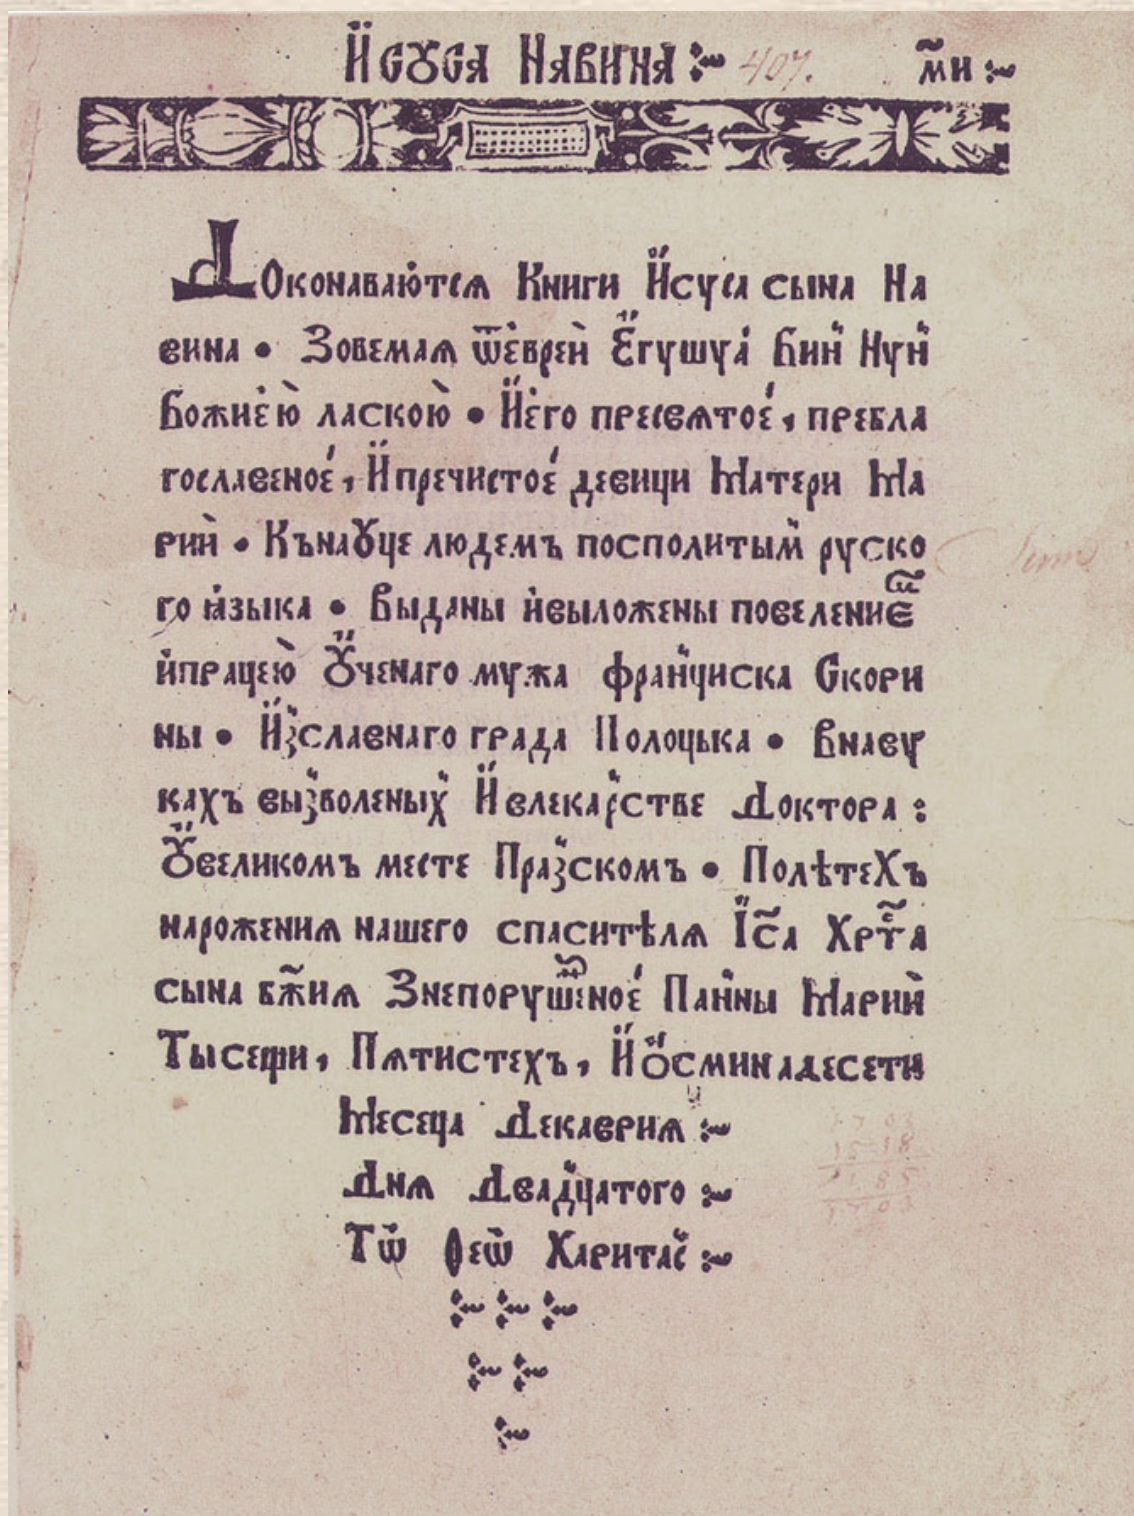 И҆СꙊСА НАВИНА 407. м҃и
ДОконаваютсѧ Книги Исуса сына На
вина • Зовемаѧ ѿеврей Егушуа Бин Нун
Божиею ласкою • Иего пресвѧтое, преbла
гославеное, Ипречистое девици Матери Ма
рии • Къ наꙋце людемъ посполитым руско
го ꙗзыка • Выданы ивыложены повеление
ипрацею Ꙋченаго мужа франциска Скори
ны • Изславнаго града Полоцька • Внаву
кахъ вызволеных Ивлекарстве Доктора :
Ꙋвеликомъ месте Празском ъ • Полѣтехъ
нарожениѧ нашего спаситѣлѧ Іс҃а Хрⷭ҇та
сына бж҃иѧ Знепорушеное Панны Марии
Тысещи, Пѧтистехъ, Иосминадесети
Месеца Декавриѧ
Днѧ Двадцатого
Тѡ Ѳеѡ Харитас